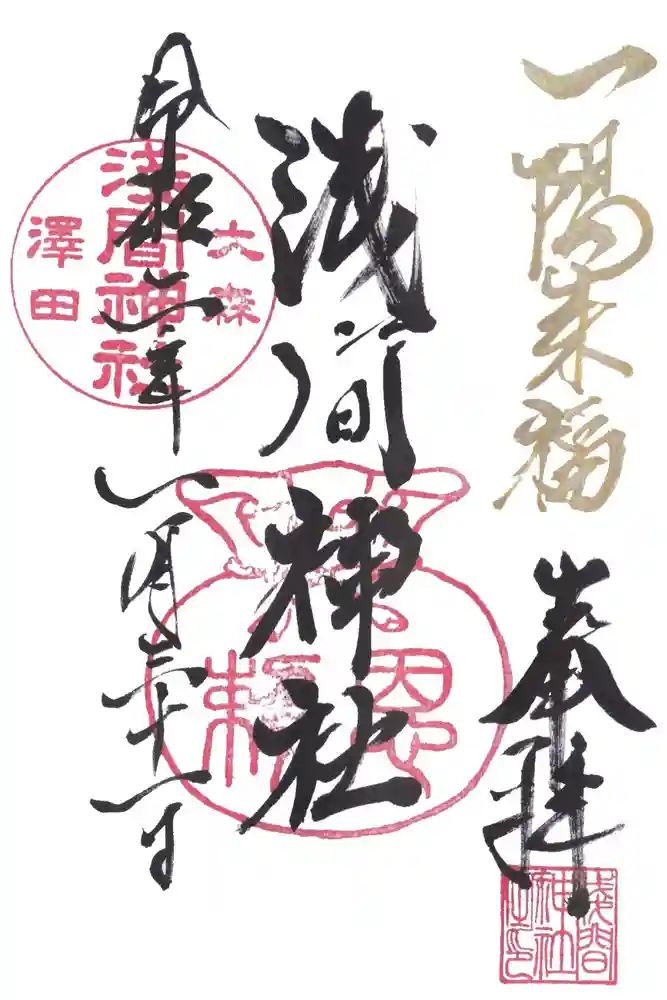 一陽来福
奉拝
浅間神社
令和二年
一月三十一日
大森
浅間神社
澤田
恩頼
浅間神社之印